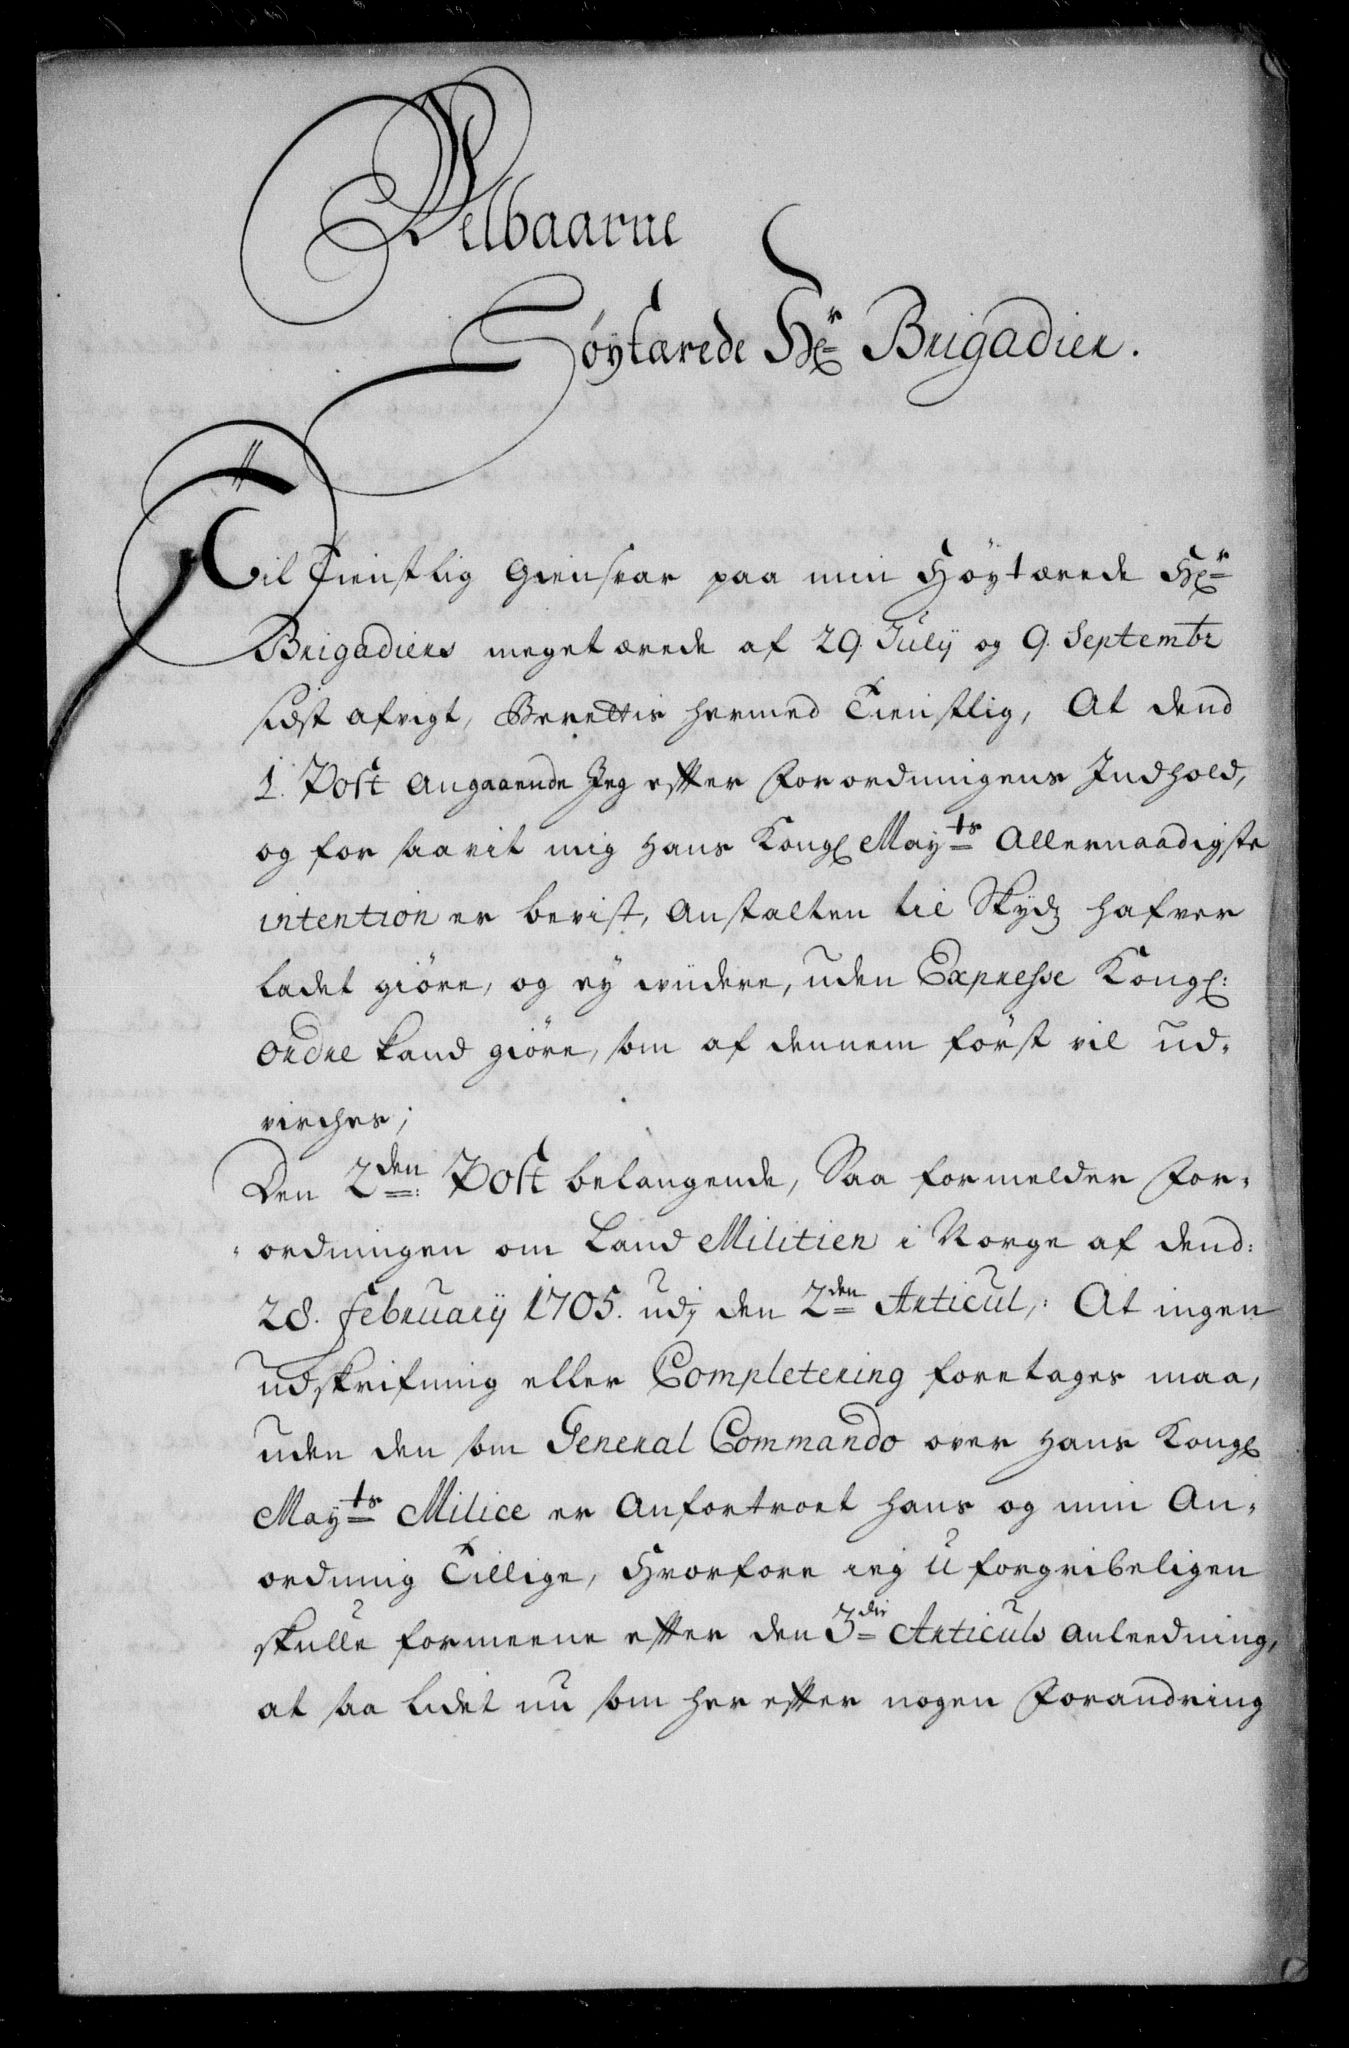 Velbaarne
Höytærede Hr Brigadier.
Til Tienstlig Giensvar paa min Höytærede Hr
Brigadiers meget ærede af 29. Julÿ og 9. Septembr
sidst afvigt, Berettis hermed Tienstlig, At dend
1. Post angaaende Jeg effter Forordningens Indhold,
og for saavit mig Hans Kongl Mayts Allernaadigste
intention er bevist, Anstalten til Skydz hafver
ladet giöre, og ey viidere, uden Expresse Kongl:
Ordre kand giöre, som af dennem först vil ud-
virches;
Den 2den: Post belangende, Saa formelder For-
ordningen om Land Militien i Norge af dend:
28. Februarÿ 1705. udj den 2den Articul,: At ingen
udskrifning eller Completering foretages maa,
uden den som General Commando over Hans Kongl
Mayts Milice er Anfortroet hans og min An-
ordning Tillige, Hvorfore ieg uforgribeligen
skulle formeene effter den 3die Articuls Anleedning,
at saa lidet nu som her effter nogen Forandring